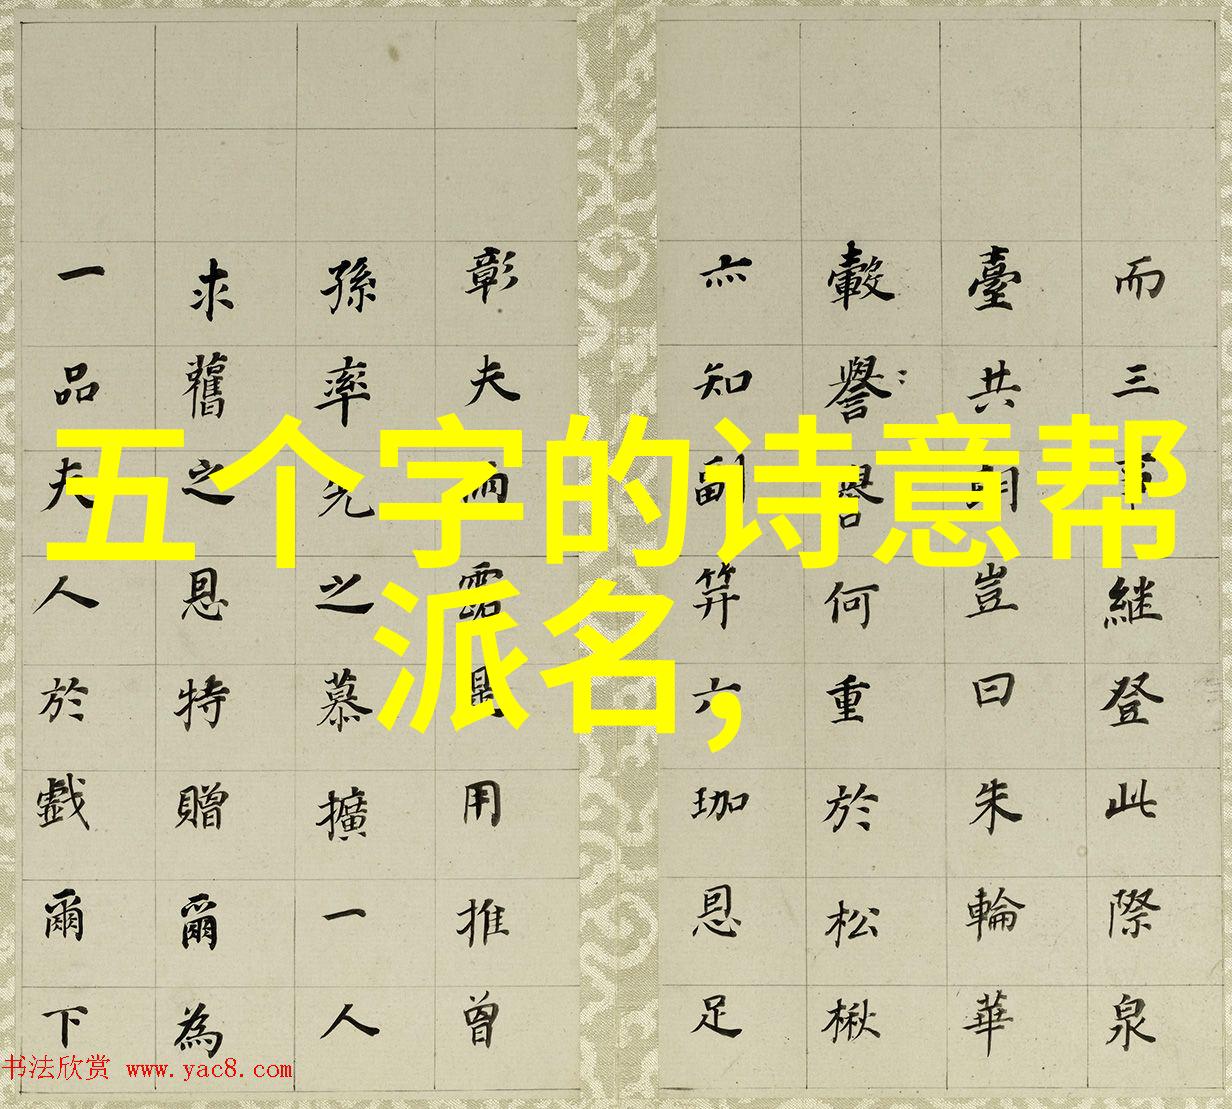 五个字的诗意帮
派名，
而三事繼登此際泉
臺共豈曰朱輪華
轂譽何重於松楸
亦知副笄六珈恩足
彰夫雨露是用推曾
孫率先之慕擴一人
求舊之恩特贈爾為
一品夫人於戲爾下
书法欣赏 www.yac8.com